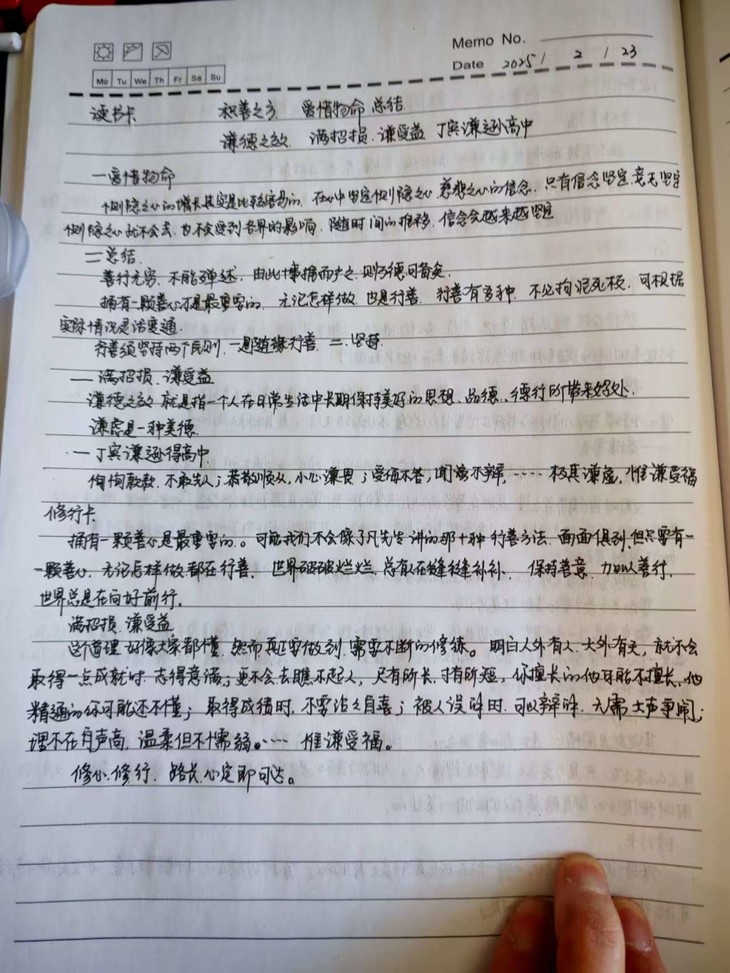 Memo No.
Mo Tu We Th Fr Sa Su
Date 2025 / 2 / 23
读书卡 积善之方 爱惜物命 总结
谦德之效 满招损、谦受益 丁宾谦逊高中
一爱惜物命
恻隐之心的增长其实是比较容易的。在心中坚定恻隐之心 慈悲之心的信念，只有信念坚定，意志坚定
恻隐之心就不会丢，也不会受到各界的影响，随时间的推移，信念会越来越坚定
二总结
善行无穷，不能殚述，由此十事推而广之，则万德可备矣。
拥有一颗善心不是最重要的，无论怎样做，也是行善，行善有多种，不必拘泥死板，可根据
实际情况灵活变通。
行善须坚持两个原则，一是随缘行善，二、坚持
一、满招损、谦受益
谦德之效，就是指一个人在日常生活中长期保持美好的思想、品德、德行所带来好处。
谦虚是一种美德。
一丁宾谦逊得高中。
恂恂款款，不敢先人；恭敬顺从，小心谦畏；受侮不答，闻谤不辩，……极其谦虚，惟谦受福
修行卡
拥有一颗善心是最重要的。可能我们不会像了凡先生讲的那十种行善方法，面面俱到，但只要有一
一颗善心，无论怎样做都在行善，世界破破烂烂，总有人在缝缝补补、保持善意，加以善行，
世界总是在向好前行。
满招损、谦受益
这个道理好像大家都懂，然而真正要做到，需要不断的修练。明白人外有人，天外有天，就不会
取得一点成就时，志得意满；更不会去瞧不起人，尺有所长，寸有所短，你擅长的他可能不擅长，他
精通的你可能还不懂；取得成绩时，不要沾沾自喜；被人误解时，可以辩解，无需大声争闹；
理不在声高，温柔但不懦弱。…惟谦受福。
修心，修行，路长心定即可达。